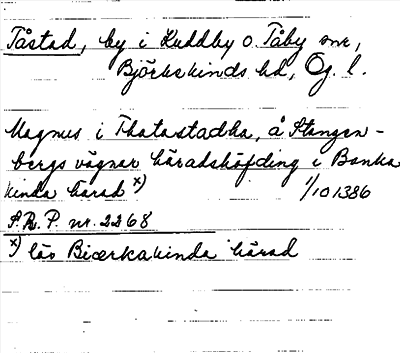 Tåstad, by i Kuddby o. Tåby snr,
Björkekinds hd, Ög. l.
Magnus i Thatastadha, å Stangen-
bergs vägnar häradshöfding i Banka
kinda härad x)    1/10 1386
S.R.P. nr. 2268
x) läs Biærkakinda härad